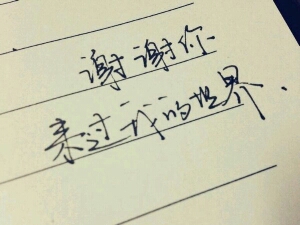 谢谢你
来过我的世界.